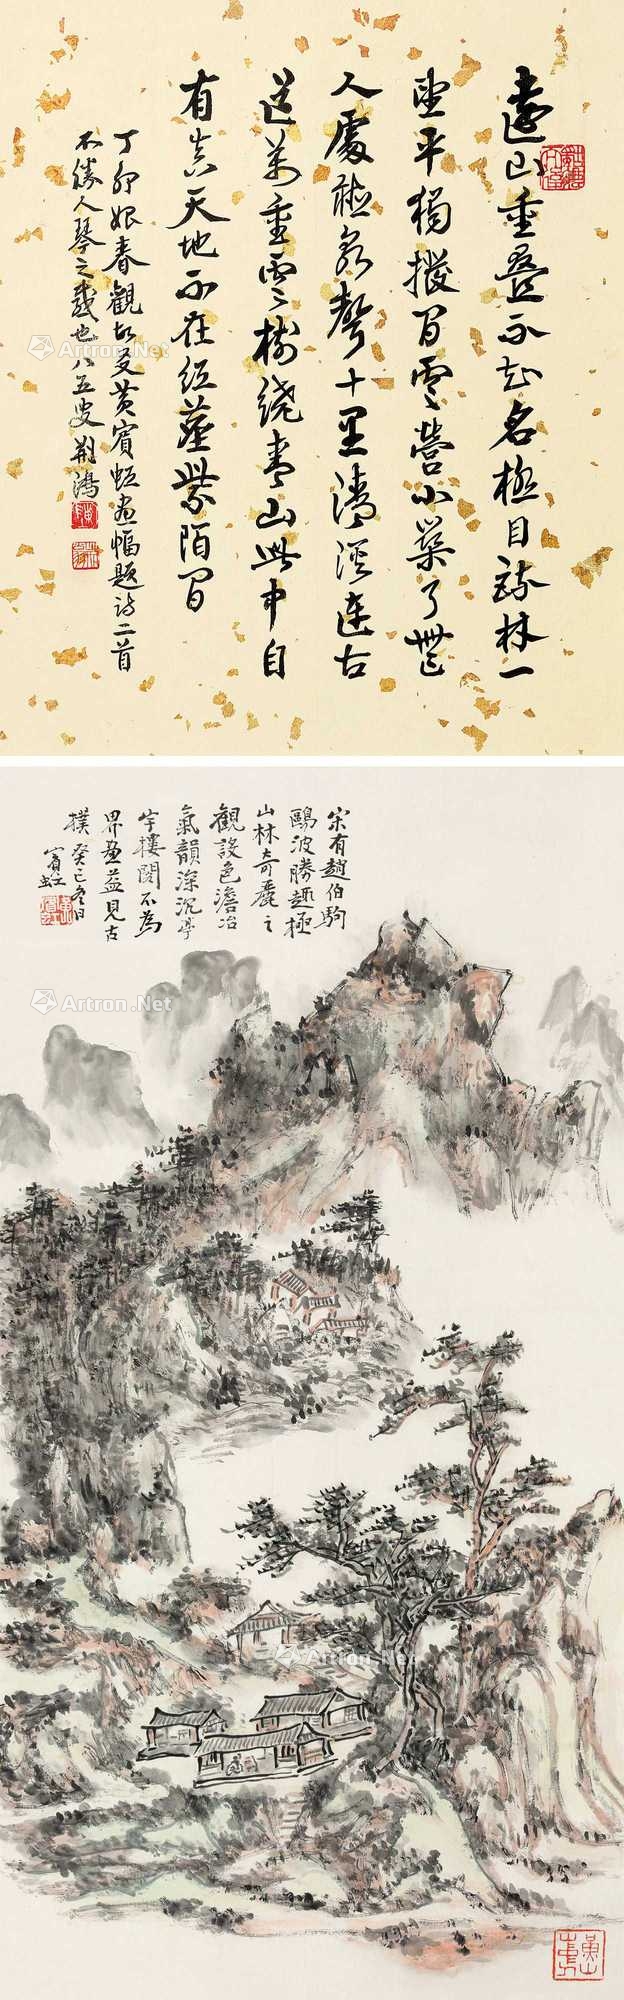 遠山重疊不知名極目疏林一
望平獨擬買雲營小築了無
人處聽泉聲十里清溪連古
道萬重雲樹繞青山此中自
有真天地不在紅塵紫陌間
丁卯娘春觀故友黃賓虹画幅題詩二首
不勝人琴之感也八五叟荆鴻
宋有趙伯駒
鷗波勝趣極
山林奇麗之
觀設色澹冶
氣韻深沉亭
宇樓閣不為
界畫益見古
樸癸巳冬日
賓虹
Artron.Net
Artron.Net
Artron.Net
Artron.Net
Artron.Net
Artron.Net